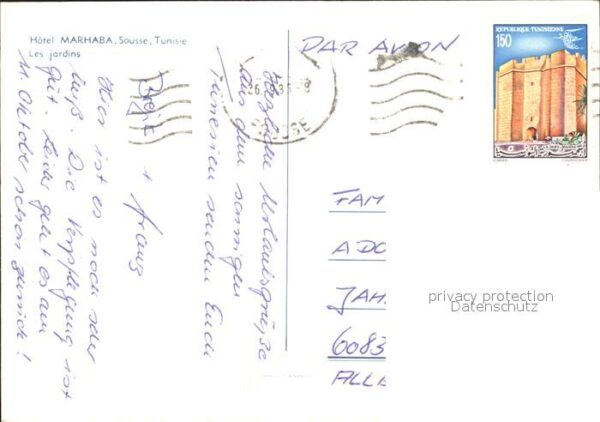 Hôtel MARHABA, Sousse, Tunisie
Les jardins
PAR AVION
REPUBLIQUE TUNISIENNE
150
SOUSSE
Herzliche Urlaubsgrüße
aus dem sonnigen
Tunesien senden Euch
+ Franz
Hier ist es noch sehr
heiß. Die Verpflegung ist
gut. Leider geht es am
11. Oktober schon zurück!
FAM
ADO
JAH
6083
ALLE
privacy protection
Datenschutz